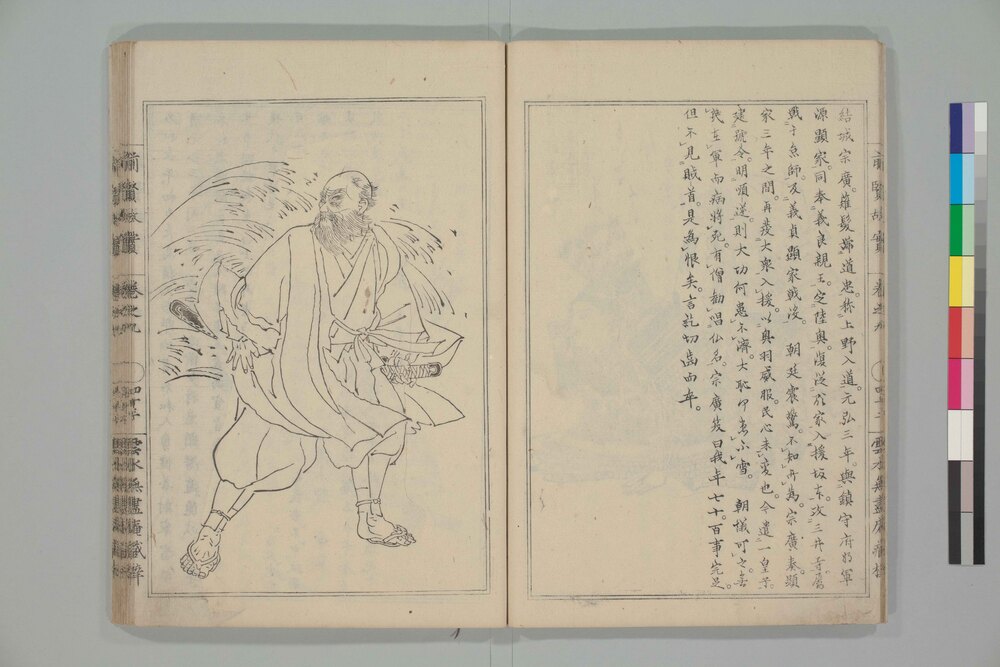 結城宗廣。薙髮歸道忠。称上野入道。元弘三年。與鎮守府将軍
源顯家。同奉義良親王。定陸奥。復従顯家入援坂東。攻三井寺。麾
戦于京師。及義貞顯家戦没。朝廷震驚。不知所為。宗廣奏。顯
家三年之間。再發大衆入援。以奥羽威服民心未変也。今遣一皇子。
建號令。明順逆。則大功何患不濟。大耻何患不雪。朝議可之。
在軍而病将死。有僧勧唱仏名。宗廣蹶曰我年七十。百事完足。
但不見賊首。是為恨矣。言訖切歯而卒。
前賢故實
卷之九
四十二
雲水無盡庵藏梓